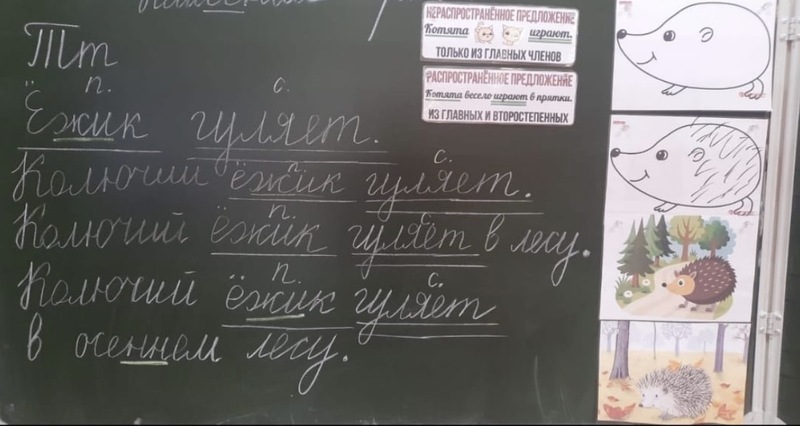 Тт
п. с.
Ёжик гуляет.
п. с.
Колючий ёжик гуляет.
п. с.
Колючий ёжик гуляет в лесу.
п. с.
Колючий ёжик гуляет
в осеннем лесу.
НЕРАСПРОСТРАНЁННОЕ ПРЕДЛОЖЕНИЕ
Котята играют.
ТОЛЬКО ИЗ ГЛАВНЫХ ЧЛЕНОВ
РАСПРОСТРАНЁННОЕ ПРЕДЛОЖЕНИЕ
Котята весело играют в прятки.
ИЗ ГЛАВНЫХ И ВТОРОСТЕПЕННЫХ